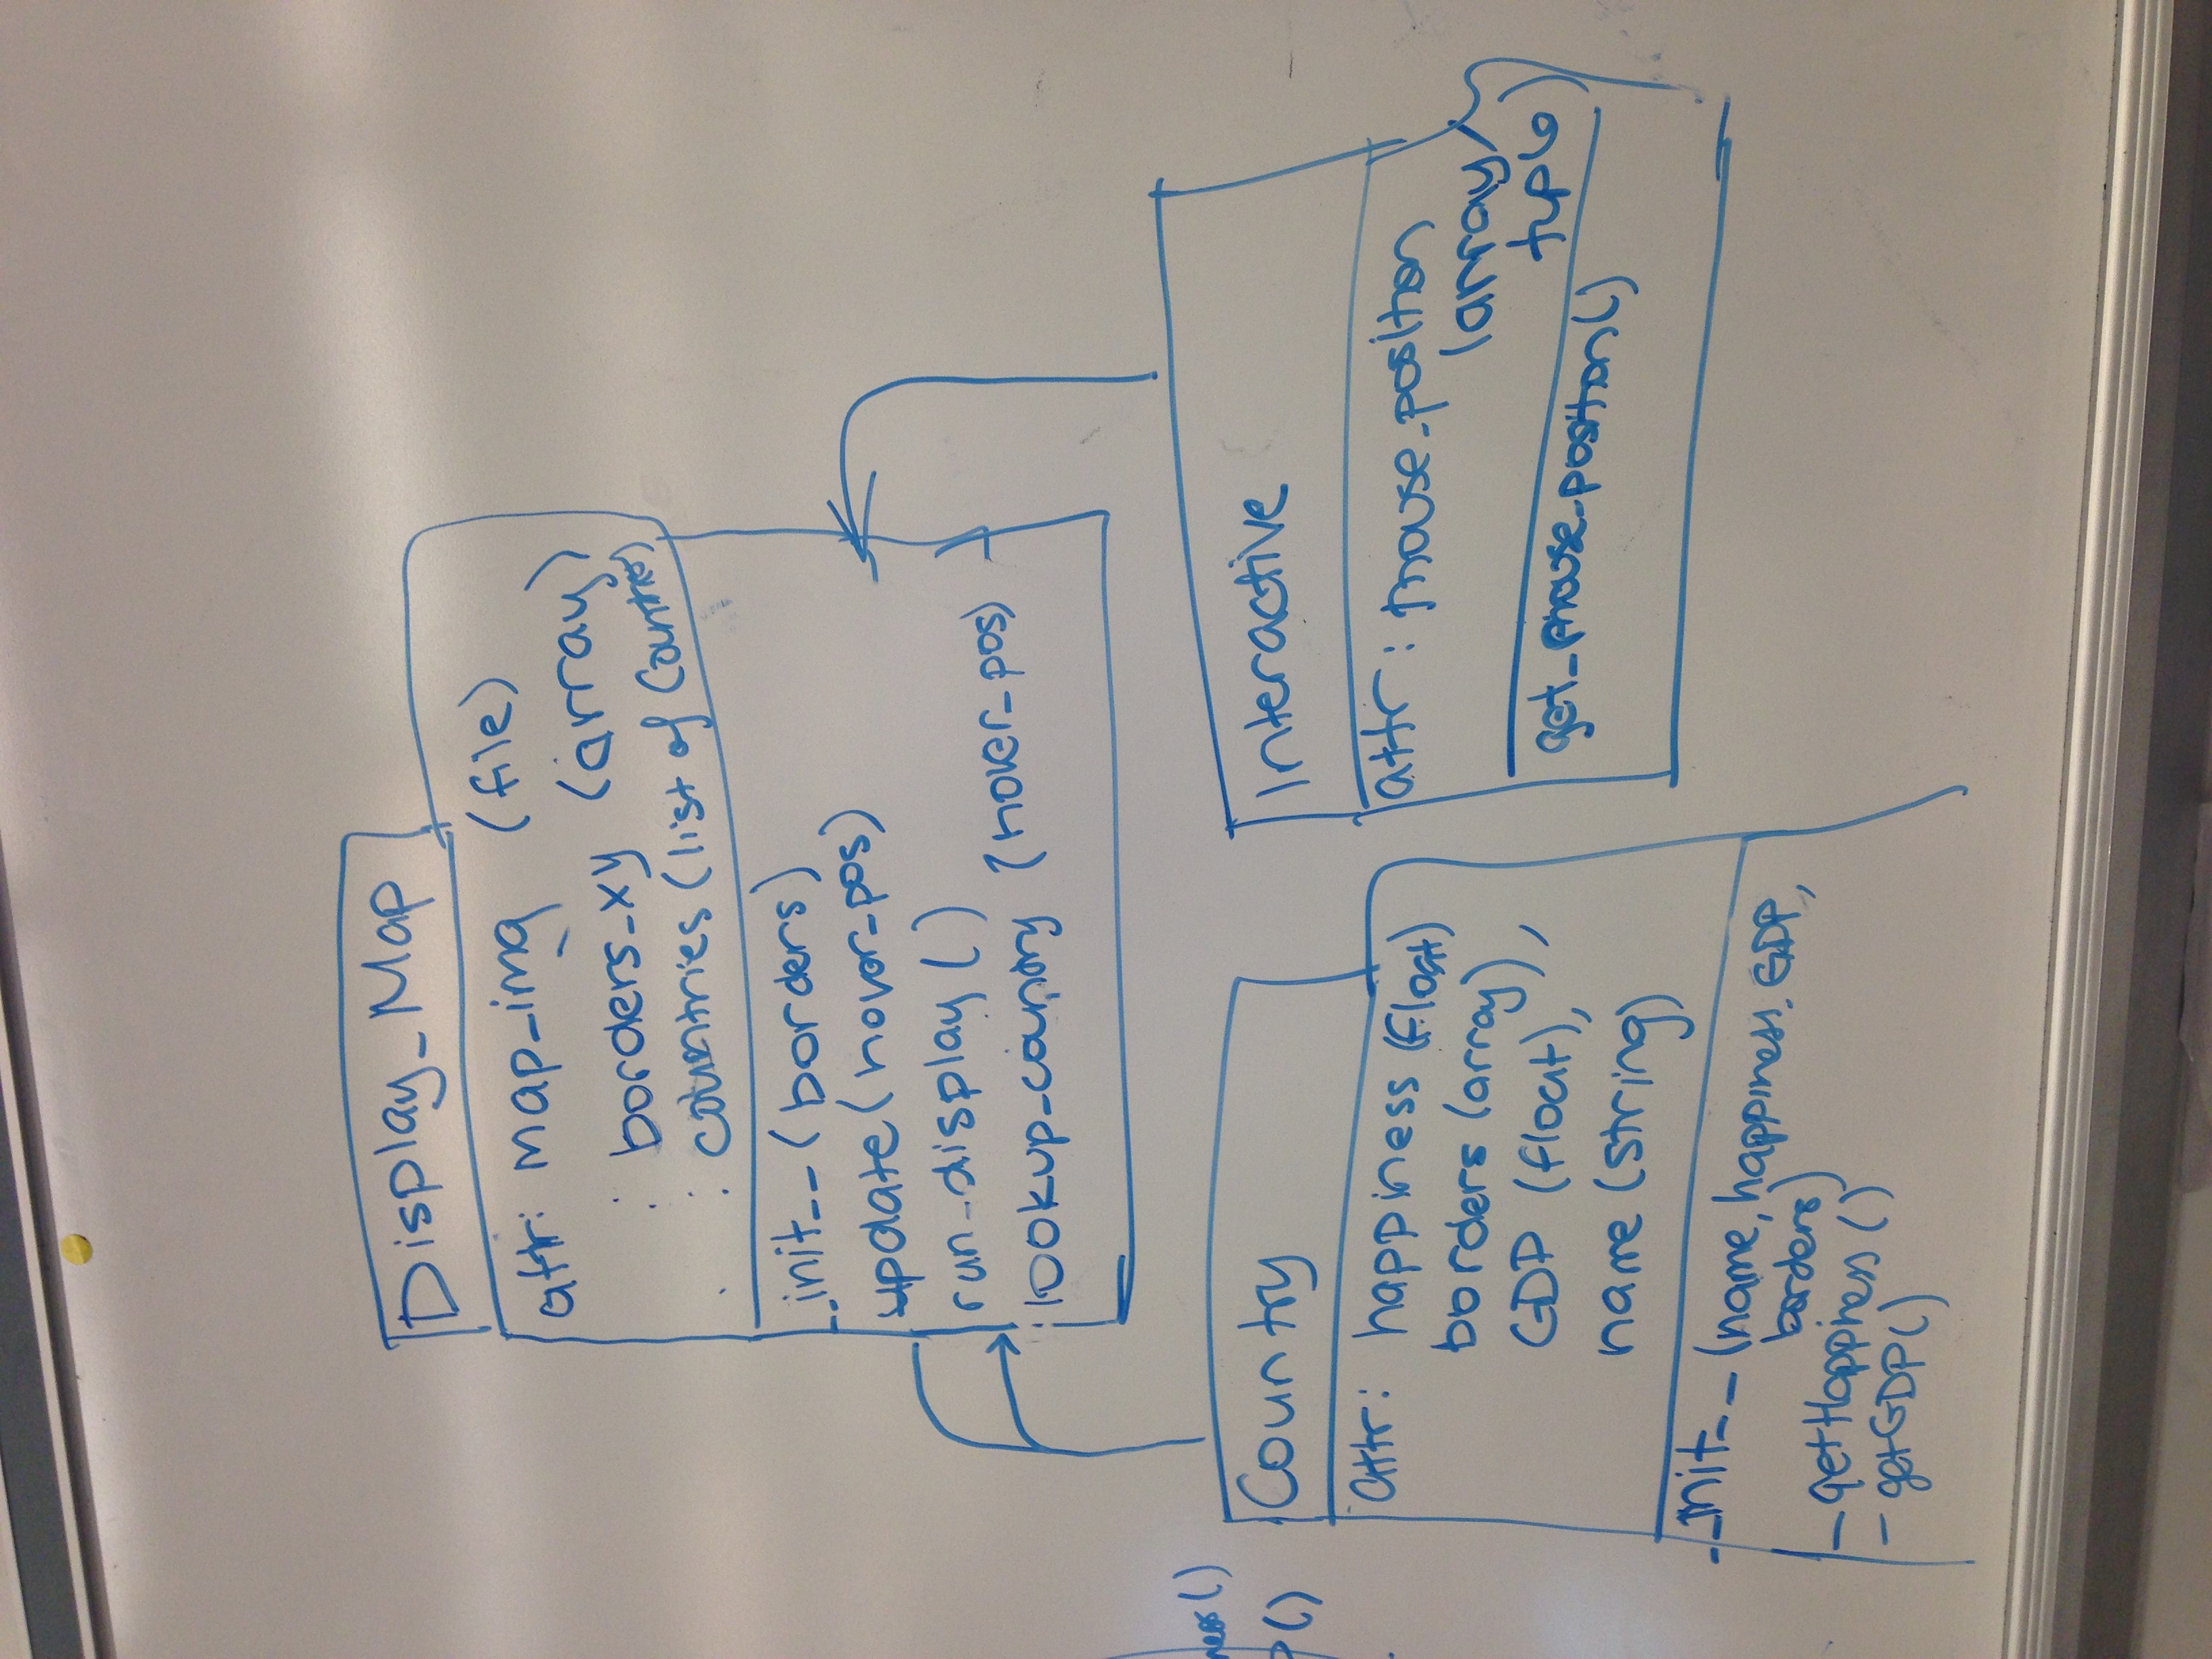 Display_Map
attr: map_img (file)
: borders_xy (array)
: countries (list of Countries)
__init__(borders)
update(hover_pos)
run_display()
lookup_country (hover_pos)
ness()
P()
Country
attr: happiness (float)
borders (array),
GDP (float),
name (string)
__init__ (name, happiness, GDP,
borders)
- getHappiness()
- getGDP()
Interactive
attr: mouse_position
(array/
tuple)
get_mouse_position()